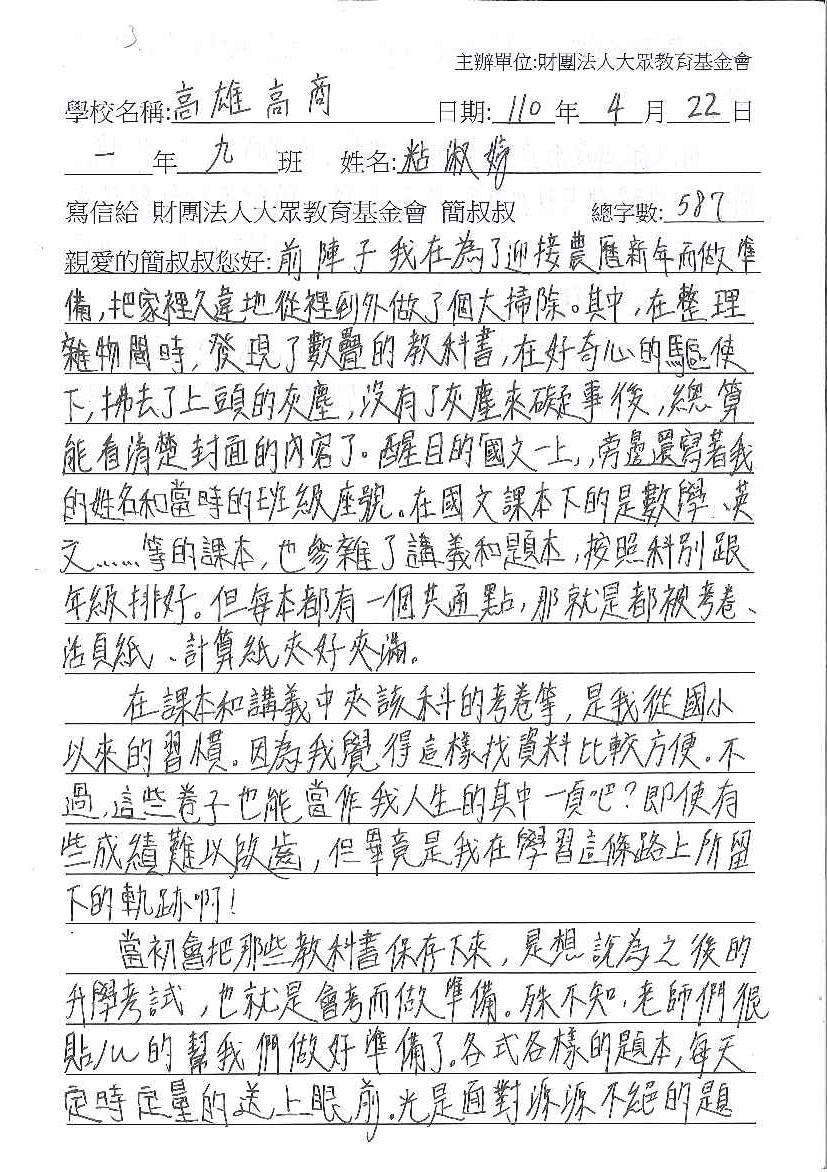 3
主辦單位:財團法人大眾教育基金會
學校名稱:高雄高商 日期:110年4月22日
一年九班 姓名:粘淑婷
寫信給 財團法人大眾教育基金會 簡叔叔 總字數:587
親愛的簡叔叔您好:前陣子我在為了迎接農曆新年而做準
備,把家裡久違地從裡到外做了個大掃除。其中,在整理
雜物間時,發現了數疊的教科書,在好奇心的驅使
下,拂去了上頭的灰塵,沒有了灰塵來礙事後,總算
能看清楚封面的內容了。醒目的“國文一上”,旁邊還寫著我
的姓名和當時的班級座號。在國文課本下的是數學、英
文……等的課本,也參雜了講義和題本,按照科別跟
年級排好。但每本都有一個共通點,那就是都被考卷、
活頁紙、計算紙夾好夾滿。
在課本和講義中夾該科的考卷等,是我從國小
以來的習慣。因為我覺得這樣找資料比較方便。不
過,這些卷子也能當作我人生的其中一頁吧?即使有
些成績難以啟齒,但畢竟是我在學習這條路上所留
下的軌跡啊!
當初會把那些教科書保存下來,是想說為之後的
升學考試,也就是會考而做準備。殊不知,老師們很
貼心的幫我們做好準備了。各式各樣的題本,每天
定時定量的送上眼前。光是面對源源不絕的題